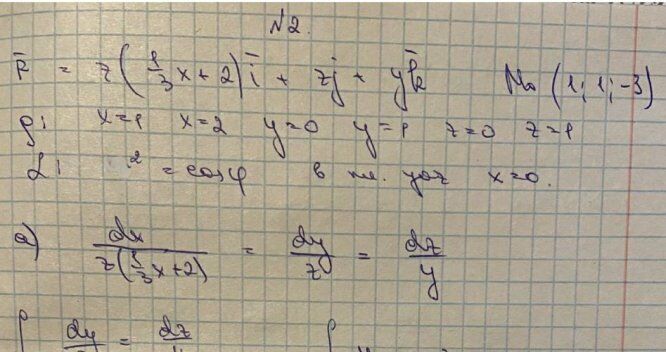 №2.
F̄ = z(1/3 x + 2) ī + zj̄ + yk̄ M₀ (1; 1; -3)
ρ: x=1 x=2 y=0 y=1 z=0 z=1
L: ² = cosφ в пл. yoz x=0.
a) dx / z(1/3 x+2) = dy / z = dz / y
∫ dy = dz ∫